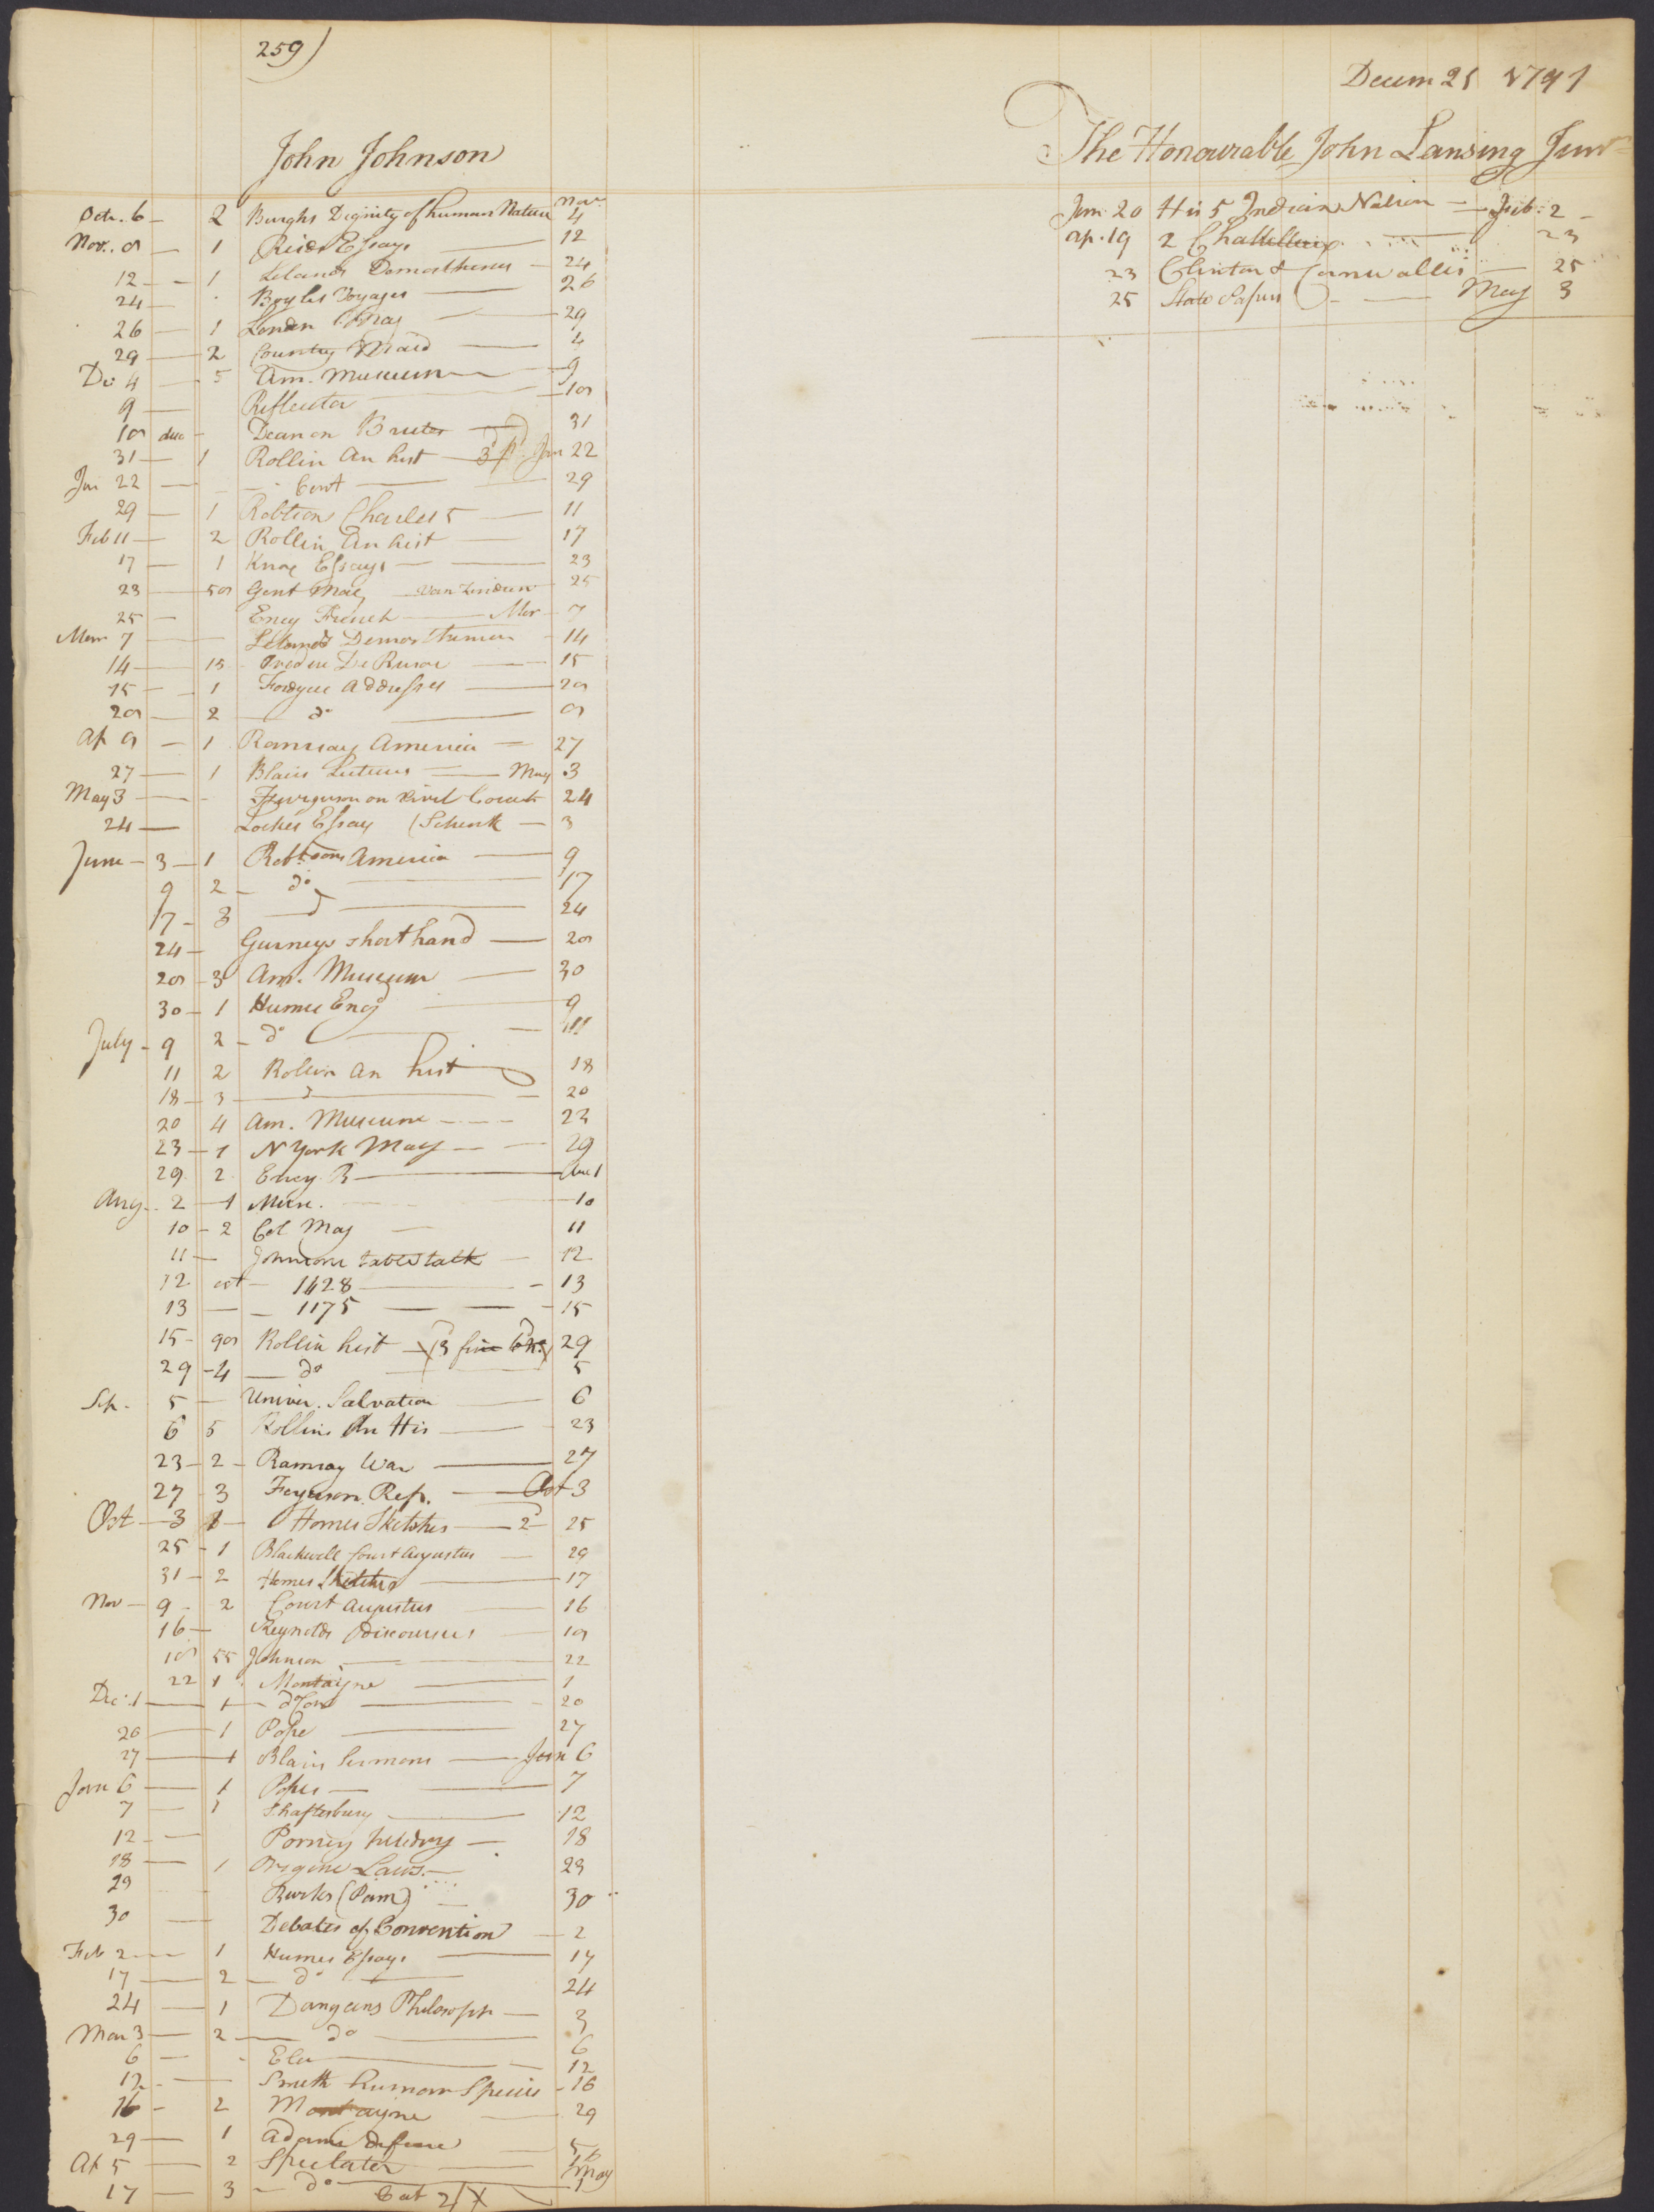 259)
John Johnson
Nov.
Octr. 6 — 2 Burghs Dignity of human Nature 4
Nov. 8 — 1 Essays 12
12 — 1 Lelands Demosthenes — 24
24 — Boyles Voyages — 26
26 — 1 London Mag — 29
29 — 2 Country Maid — 4
De 4 — 5 Am. Museum — 9
9 — Reflector — 18
18 duo — Dean on Brutes — 31
31 — 1 Rollin An hist — Jan 22
Jan 22 — Cont — 29
29 — 1 Robtson Charles 5 — 11
Feb 11 — 2 Rollin An hist — 17
17 — 1 Knox Essays — 23
23 — 58 Gent Mag — 25
25 — Ency French — Mar 7
Mar 7 — Lelands Demosthenes — 14
14 — 15 — 15
15 — 1 Fordyce Addresses — 28
28 — 2 — do — 8
Ap 8 — 1 Ramsay America — 27
27 — 1 Blairs Lectures — May 3
May 3 — Furguson on Civil — 24
24 — Lockes Essay (Schenk — 3
June — 3 — 1 Robtsons America — 9
9 2 — do — 17
17 — 3 — 24
24 — Gurneys shorthand — 28
28 — 3 Am. Museum — 30
30 — 1 Humes Eng — 9
July — 9 2 — do — 11
11 2 Rollin An hist — 18
18 — 3 — 20
20 4 Am. Museum — 23
23 — 1 N York Mag — 29
29 2 Ency B — Aug 1
Aug. 2 — 1 — 10
10 — 2 Col Mag — 11
11 — Johnsons table talk — 12
12 oct — 1128 — 13
13 — 1175 — 15
15 — 98 Rollin hist — 29
29 — 4 — do — 5
Sep. 5 — Univer. Salvation — 6
6 5 Rollins An His — 23
23 — 2 — Ramsay War — 27
27 — 3 Ferguson Rep. — Oct 3
Oct — 3 1 — Homes Sketches — 2 — 25
25 — 1 Blackwell Court Augustus — 29
31 — 2 Homes Sketches — 17
Nov — 9 — 2 Court Augustus — 16
16 — Reynolds Discourses — 18
18 55 Johnson — 22
22 1 Montaigne — 1
Dec. 1 — 1 — — 20
20 — 1 Pope — 27
27 — 1 Blairs Sermons — Jan 6
Jan 6 — 1 Popes — 7
7 — 1 Shaftesbury — 12
12 — Porneys heldry — 18
18 — 1 Origine Laws — 29
29 Burkes (Pam) — 30
30 — Debates of Convention — 2
Feb 2 — 1 Humes Essays — 17
17 — 2 — do — 24
24 — 1 Dangans Philosoph — 3
Mar 3 — 2 — do — 6
6 — — 12
12 — Smith human Species — 16
16 — 2 Montaigne — 29
29 — 1 Adams defence — 5
Ap 5 — 2 Spectator — 17
May
17 — 3 — do — 1
Decem 21 1791
The Honourable John Lansing Junr
Jan. 20 His 5 Indian Nation — Feb. 2 —
Ap. 19 2 Chattellux — 23
23 Clinton & Cornwallis — 25
25 State Papers — May 3